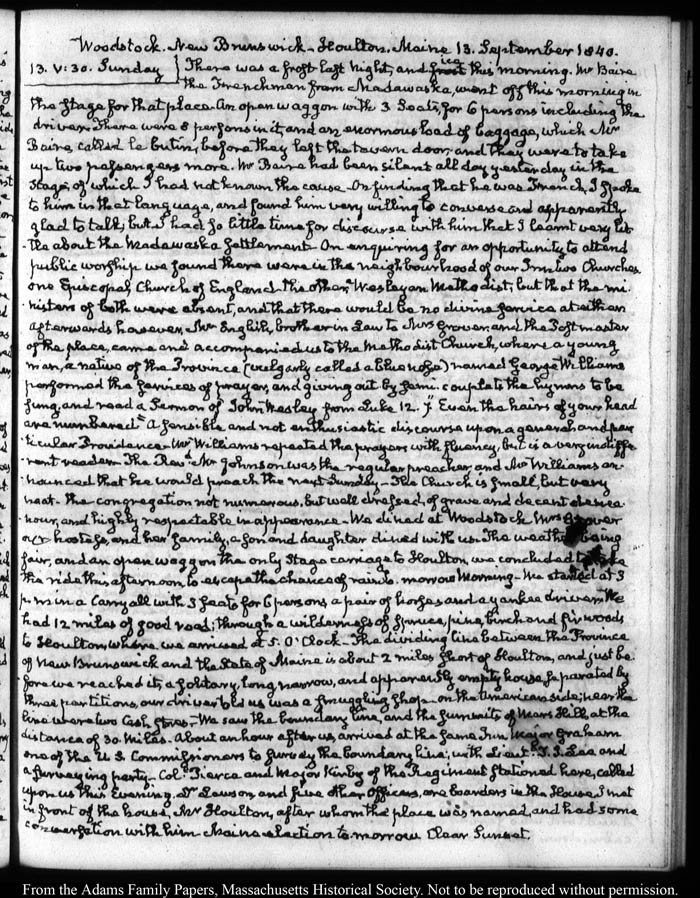 Woodstock. New Brunswick – Houlton. Maine 13. September 1840.
13. V: 30. Sunday } There was a frost last night, and ice this morning. Mr Baire
the Frenchman from Madawaska, went off this morning in
the Stage for that place. An open waggon with 3 Seats, for 6 persons including the
driver. There were 8 persons in it, and an enormous load of baggage, which Mr
Baire called le butin, before they left the tavern door, and they were to take
up two passengers more. Mr Baire had been silent all day yesterday in the
Stage, of which I had not known the cause. On finding that he was French, I spoke
to him in that language, and found him very willing to converse and apparently
glad to talk, but I had so little time for discourse with him that I learnt very lit-
-tle about the Madawaska Settlement – On enquiring for an opportunity to attend
public worship we found there were in the neighbourhood of our Inn two Churches
one Episcopal Church of England – the other, Wesleyan Methodist; but that the mi-
-nisters of both were absent, and that there would be no divine service at either
afterwards however, Mr English, brother in Law to Mrs Grover, and the Postmaster
of the place, came and accompanied us to the Methodist Church, where a young
man, a native of the Province (vulgarly called a blue nose) named George Williams
performed the services of prayer, and giving out by semi-couplets the hymns to be
sung, and read a Sermon of John Wesley from Luke 12. 7. "Even the hairs of your head
are numbered" A sensible and not enthusiastic discourse upon a general and par-
ticular Providence – Mr Williams repeated the prayers with fluency, but is a very indiffe-
-rent reader. The Revd Mr Johnson was the regular preacher, and Mr Williams an-
-nounced that he would preach the next Sunday – The Church is small, but very
neat – the congregation not numerous, but well dressed, of grave and decent demea-
nour, and highly respectable in appearance – We dined at Woodstock Mrs Grover
our hostess, and her family, a son and daughter dined with us. The weather being
fair, and an open waggon the only Stage carriage to Houlton, we concluded to take
the ride this afternoon, to escape the chance of rain to-morrow Morning – We started at 3
p.m in a Carryall with 3 seats for 6 persons a pair of horses and a yankee driver. We
had 12 miles of good road; through a wilderness of spruce, pine, birch and fir woods
to Houlton, where we arrived at 5. O'Clock – The dividing line between the Province
of New Brunswick and the State of Maine is about 2 miles short of Houlton, and just be-
fore we reached it, a solitary, long narrow, and apparently empty house, separated by
three partitions, our driver told us was a smuggling shop – on the American side; near the
line were two Cash stores – We saw the boundary line, and the summits of Mars Hill, at the
distance of 30 miles. About an hour after us, arrived at the same Inn Major Graham
one of the U.S Commissioners to survey the boundary line; with Lieut. T. J. Lee and
a surveying party – Coll Pierce and Major Kirby of the Regiment stationed here, called
upon us this Evening. Dr Lawson and five other Officers, are boarders in the House. I met
in front of the house, Mr Houlton, after whom the place was named, and had some
conversation with him Maine election to morrow Clear Sunset.
From the Adams Family Papers, Massachusetts Historical Society. Not to be reproduced without permission.